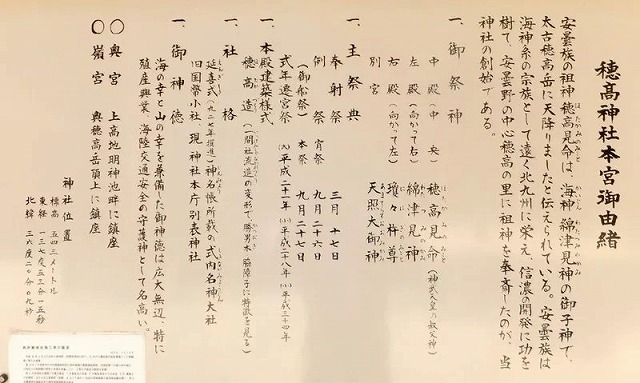 穂高神社本宮御由緒
安曇族の祖神穂高見命は、海神綿津見神の御子神で、
太古穂高岳に天降りましたと伝えられている。安曇族は
海神系の宗族として遠く北九州に栄え、信濃の開発に功を
樹て、安曇野の中心穂高の里に祖神を奉斎したのが、当
神社の創始である。
一、御祭神
中殿 中央 穂高見命
左殿 (向かって右) 綿津見神
右殿 (向かって左) 瓊々杵尊
別宮 天照大御神
一、主祭典
奉射祭 三月十七日
例祭 宵祭 九月二十六日
(御船祭) 本祭 九月二十七日
式年遷宮祭 (大)平成二十一年 (小)平成二十八年 (小)平成三十四年
一、本殿建築様式
穂高造(一間社流造の変形で、勝男木 脇障子に特徴を見る)
一、社格
延喜式(九二七年撰進)神名帳所載の式内名神大社
旧国幣小社 現神社本庁別表神社
一、御神徳
海の幸と山の幸を兼備した御神徳は広大無辺、特に
殖産興業、海陸交通安全の守護神として名高い。
○奥宮 上高地明神池畔に鎮座
○嶺宮 奥穂高岳頂上に鎮座
神社位置
標高 五四三メートル
東経 一三七度五三分一五秒
北緯 三六度二〇分〇九秒